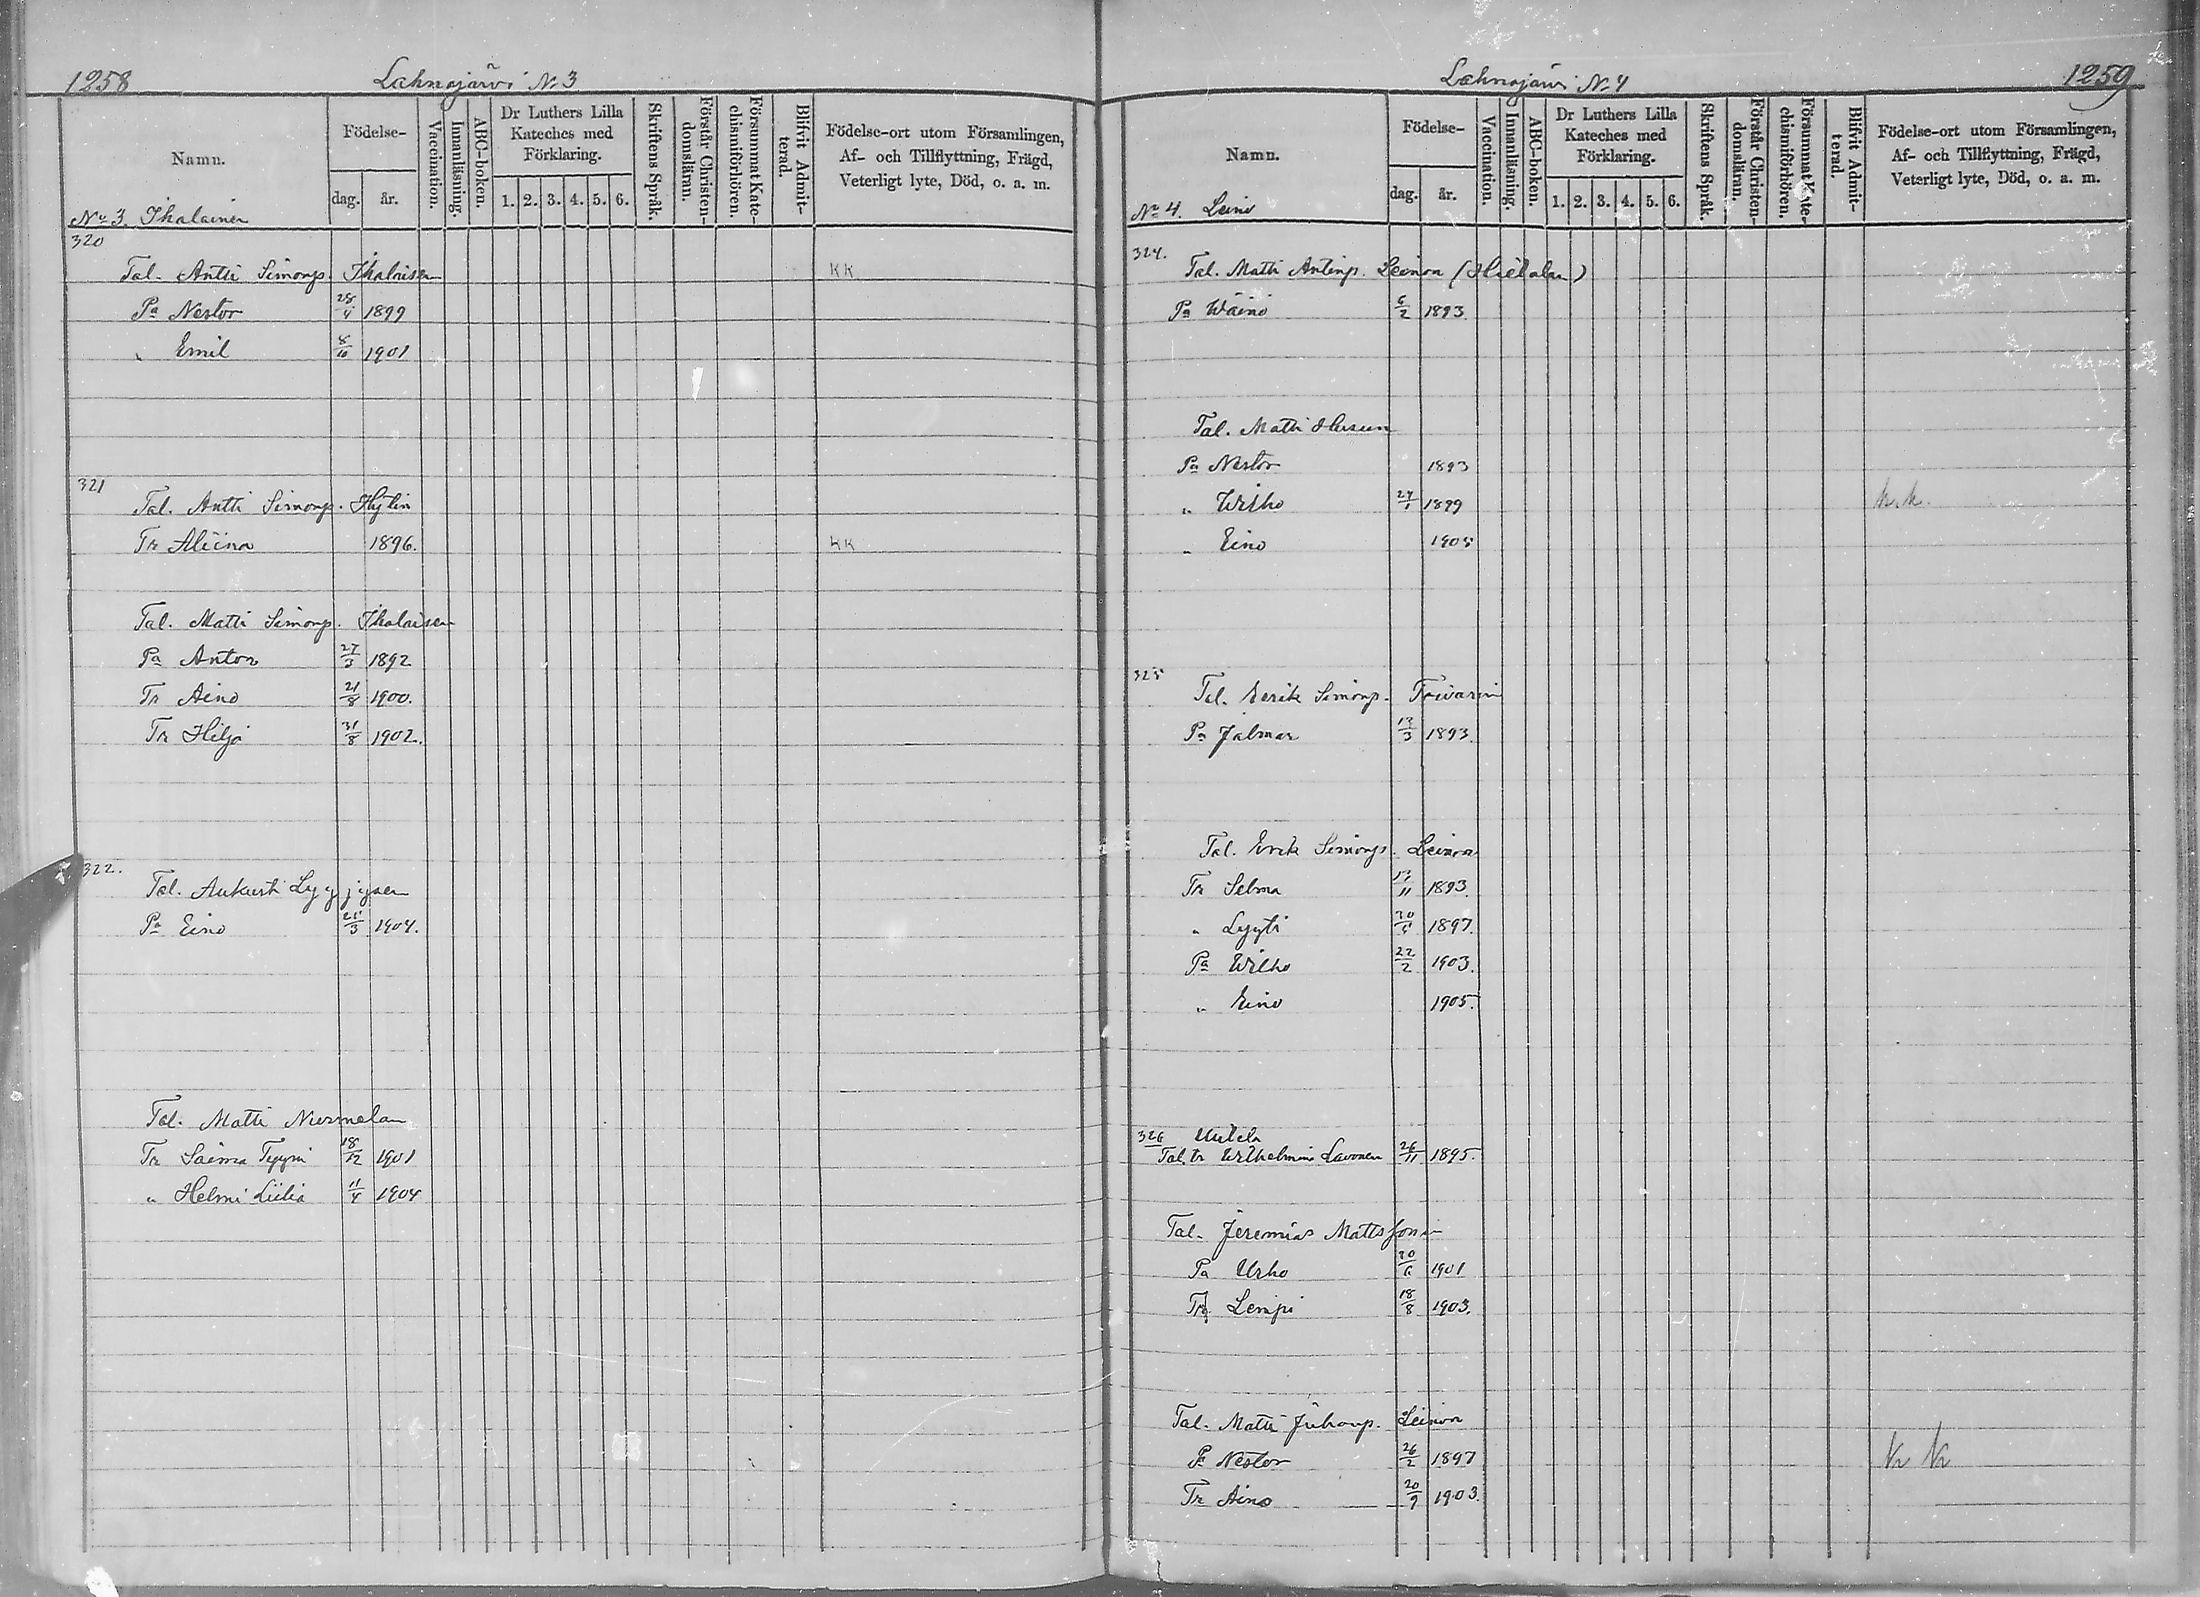 1258
Lahnajärvi N:3
Namn.
Födelse-
dag.
år.
Vaccination.
Innanläsning.
ABC-boken.
Dr Luthers Lilla
Kateches med
Förklaring.
1. 2. 3. 4. 5. 6.
Skriftens Språk.
Förstår Christen-
domsläran.
Försummat Kate-
chismiförhören.
Blifvit Admit-
terad.
Födelse-ort utom Församlingen,
Af- och Tillflyttning, Frägd,
Veterligt lyte, Död, o. a. m.
No 3. Ihalainen
320
Tal. Antti Simonp. Ihalaisen KK
Pa Nestor 28/4 1899
" Emil 8/10 1901
321
Tal. Antti Simonp. Hytin
Tr Aliina 1896. KK
Tal. Matti Simonp. Ihalaisen
Pa Anton 27/3 1892
Tr Aino 21/8 1900.
Tr Hilja 31/8 1902.
322.
Tal. Aukusti Lyyjysen
Pa Eino 25/3 1904.
Tal. Matti Nurmelan
Tr Saima Tyyni 18/12 1901
" Helmi Liilia 11/4 1904
Lahnajärvi N:4
1259
Namn.
Födelse-
dag.
år.
Vaccination.
Innanläsning.
ABC-boken.
Dr Luthers Lilla
Kateches med
Förklaring.
1. 2. 3. 4. 5. 6.
Skriftens Språk.
Förstår Christen-
domsläran.
Försummat Kate-
chismiförhören.
Blifvit Admit-
terad.
Födelse-ort utom Församlingen,
Af- och Tillflyttning, Frägd,
Veterligt lyte, Död, o. a. m.
No 4. Leino
324.
Tal. Matti Antinp. Leinon (Hietalan)
Pa Wäinö 6/2 1893
Tal. Matti
Pa Nestor 1893
" Wilho 24/1 1899 k.k.
" Eino 1905
325
Tal. Eerik Simonp.
Pa Jalmar 13/3 1893.
Tal. Erik Simonp. Leinon
Tr Selma 13/11 1893.
" Lyyti 1897.
Pa Wilho 22/2 1903.
" Eino 1905.
326
Tal. tr Wilhelmina Lavonen 26/11 1895.
Tal. Jeremias Mattssonin
Pa Urho 30/6 1901
Tr Lempi 18/8 1903.
Tal. Matti Juhonp. Leinon
P. Nestor 26/2 1897 K K
Tr Aino 20/9 1903.